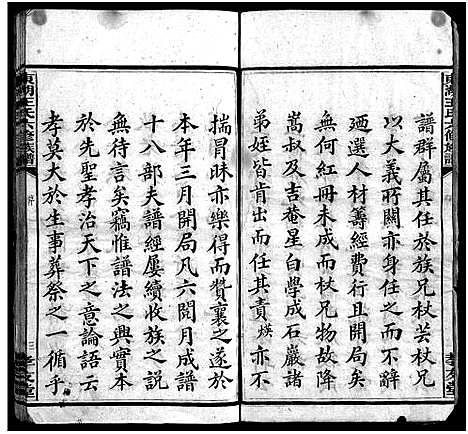 譜群屬其任於族兄杖芸杖兄
以大義所關亦身任之而不辭
廼選人材籌經費行且開局矣
無何紅冊未成而杖兄物故降
嵩叔及吉菴星白學成石巖諸
弟姪皆肯出而任其責煐亦不
揣冒昧亦樂得而贊襄之遂於
本年三月開局凡六閱月成譜
十八部夫譜經屢續收族之法
無待言矣竊惟譜法之興實本
於先聖孝治天下之意論語云
孝莫大於生事葬祭之一循乎
東湖王氏六修族譜